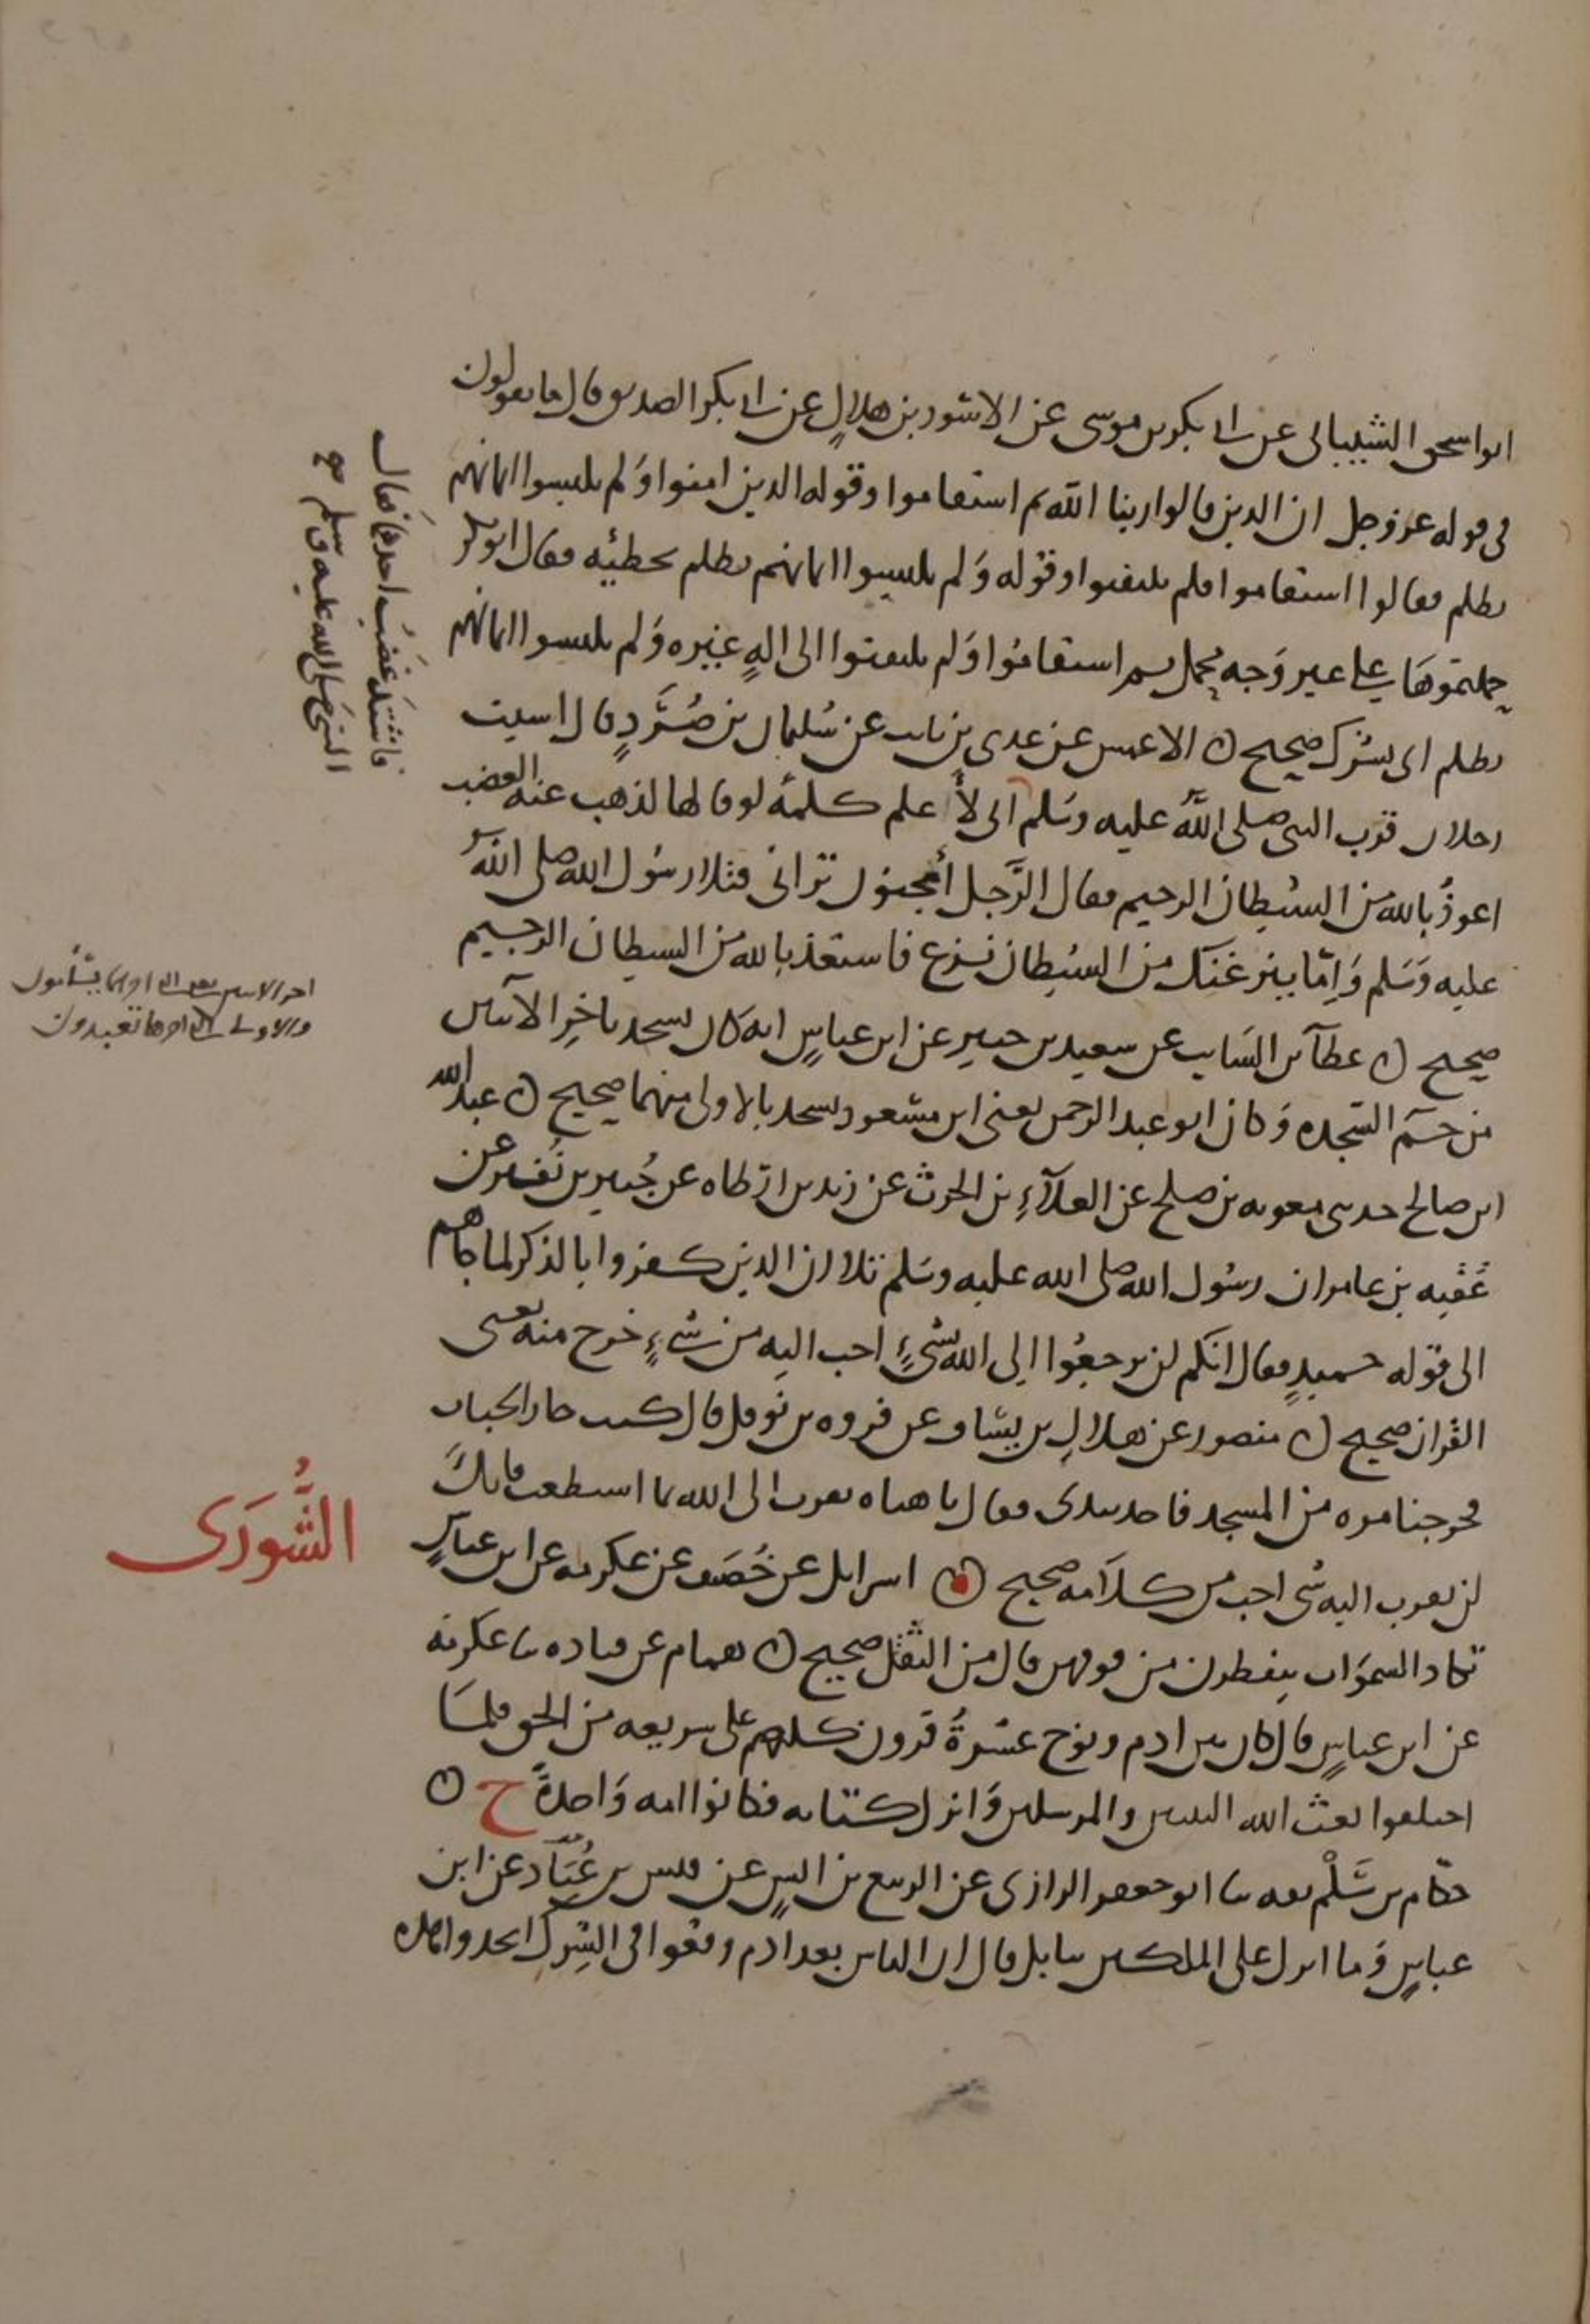 ابو اسحق الشيباني عن ابي بكر بن موسى عن الاسود بن هلال عن ابي بكر الصديق قال ما تقولون
في قوله عز وجل ان الذين قالوا ربنا الله ثم استقاموا وقوله الذين امنوا ولم يلبسوا ايمانهم
بظلم فقالوا استقاموا فلم يلتفتوا وقوله ولم يلبسوا ايمانهم بظلم بخطيئه فقال ابو بكر
حملتموها على غير وجه محمل ثم استقاموا ولم يلتفتوا الى اله غيره ولم يلبسوا ايمانهم
بظلم اى بشرك صحيح ن الاعمش عن عدي بن ثابت عن سليمان بن صرد قال استب
رجلان قرب النبي صلى الله عليه وسلم انى لأعلم كلمة لو قالها لذهب عنه الغضب
اعوذ بالله من الشيطان الرجيم فقال الرجل أمجنون تراني فتلا رسول الله صلى الله
عليه وسلم وإما ينزغنك من الشيطان نزغ فاستعذ بالله من الشيطان الرجيم
صحيح ن عطاء بن السايب عن سعيد بن جبير عن ابن عباس انه كان يسجد باخر الآيتين
من حم السجده وكان ابو عبد الرحمن يعنى ابن مسعود يسجد بالاولى منهما صحيح ن عبد الله
ابن صالح حدثني معويه بن صلح عن العلاء بن الحرث عن زيد بن ارطاه عن جبير بن نفير عن
عقبه بن عامر ان رسول الله صلى الله عليه وسلم تلا ان الذين كفروا بالذكر لما جاهم
الى قوله حميد فقال انكم لن ترجعوا الى الله بشيء احب اليه من شيء خرج منه يعنى
القران صحيح ن منصور عن هلال بن يساف عن فروه بن نوفل قال كنت جار الخباب
فخرجنا مره من المسجد فاخذ بيدى فقال يا هناه تقرب الى الله بما استطعت فانك
لن تقرب اليه بشى احب من كلامه صحيح ن اسرايل عن خصيف عن عكرمه عن ابن عباس
الشورى
تكاد السموات ينفطرن من فوقهن قال من الثقل صحيح ن همام عن قتاده نا عكرمه
عن ابن عباس قال كان بين ادم ونوح عشرة قرون كلهم على شريعه من الحق فلما
اختلفوا بعث الله النبيين والمرسلين وانزل كتابه فكانوا امه واحدة ح ن
حكام بن سلم ثقه نا ابو جعفر الرازى عن الربيع بن انس عن قيس بن عباد عن ابن
عباس وما انزل على الملكين ببابل قال ان الناس بعد ادم وقعوا في الشرك اتخدوا
فاشتد غضب احدهما فقال
النبى صلى الله عليه وسلم
اخر الايتين يسأمون
والاولى تعبدون